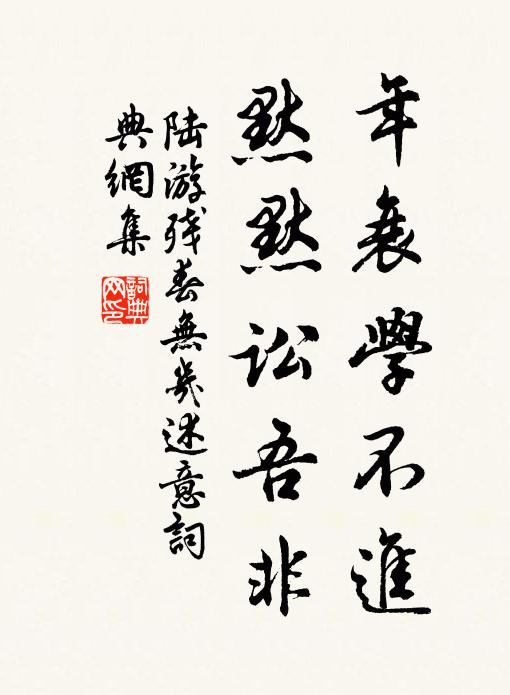 年衰學不進
默默訟吾非
陆游残春無幾述意詞
典網集
詞典網印